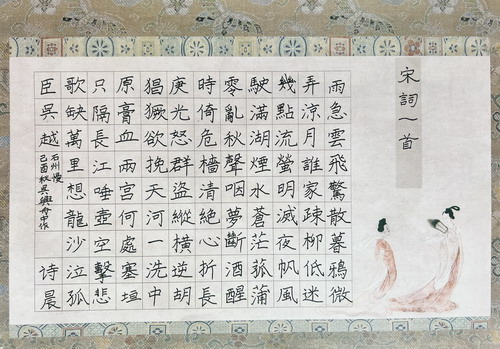 宋詞一首
雨急雲飛驚散暮鴉微
弄涼月誰家疎柳低迷
幾點流螢明滅夜帆風
駛滿湖煙水蒼茫菰蒲
零亂秋聲咽夢斷酒醒
時倚危檣清絕心折長
庚光怒群盜縱橫逆胡
猖獗欲挽天河一洗中
原膏血兩宮何處塞垣
只隔長江唾壺空擊悲
歌缺萬里想龍沙泣孤
臣吳越
石州慢
己酉秋吳興舟中作
詩晨